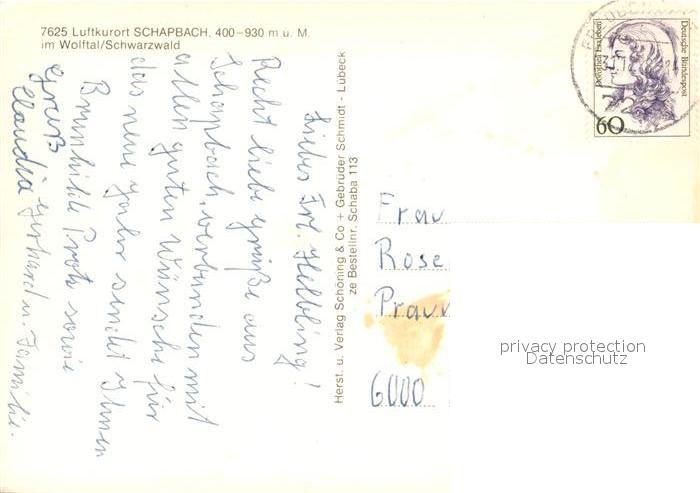 7625 Luftkurort SCHAPBACH, 400-930 m ü. M.
im Wolftal/Schwarzwald
Liebes Frl. Helbling!
Recht liebe Grüße aus
Schapbach, verbunden mit
allen guten Wünschen für
das neue Jahr sendet Ihnen
Brunhilde Proto sowie
Gruß
Claudia Gerhard u. Familie.
Herst. u. Verlag Schöning & Co + Gebrüder Schmidt - Lübeck
ze Bestellnr. Schaba 113
Deutsche Bundespost
60
Frau
Rose
6000
privacy protection
Datenschutz